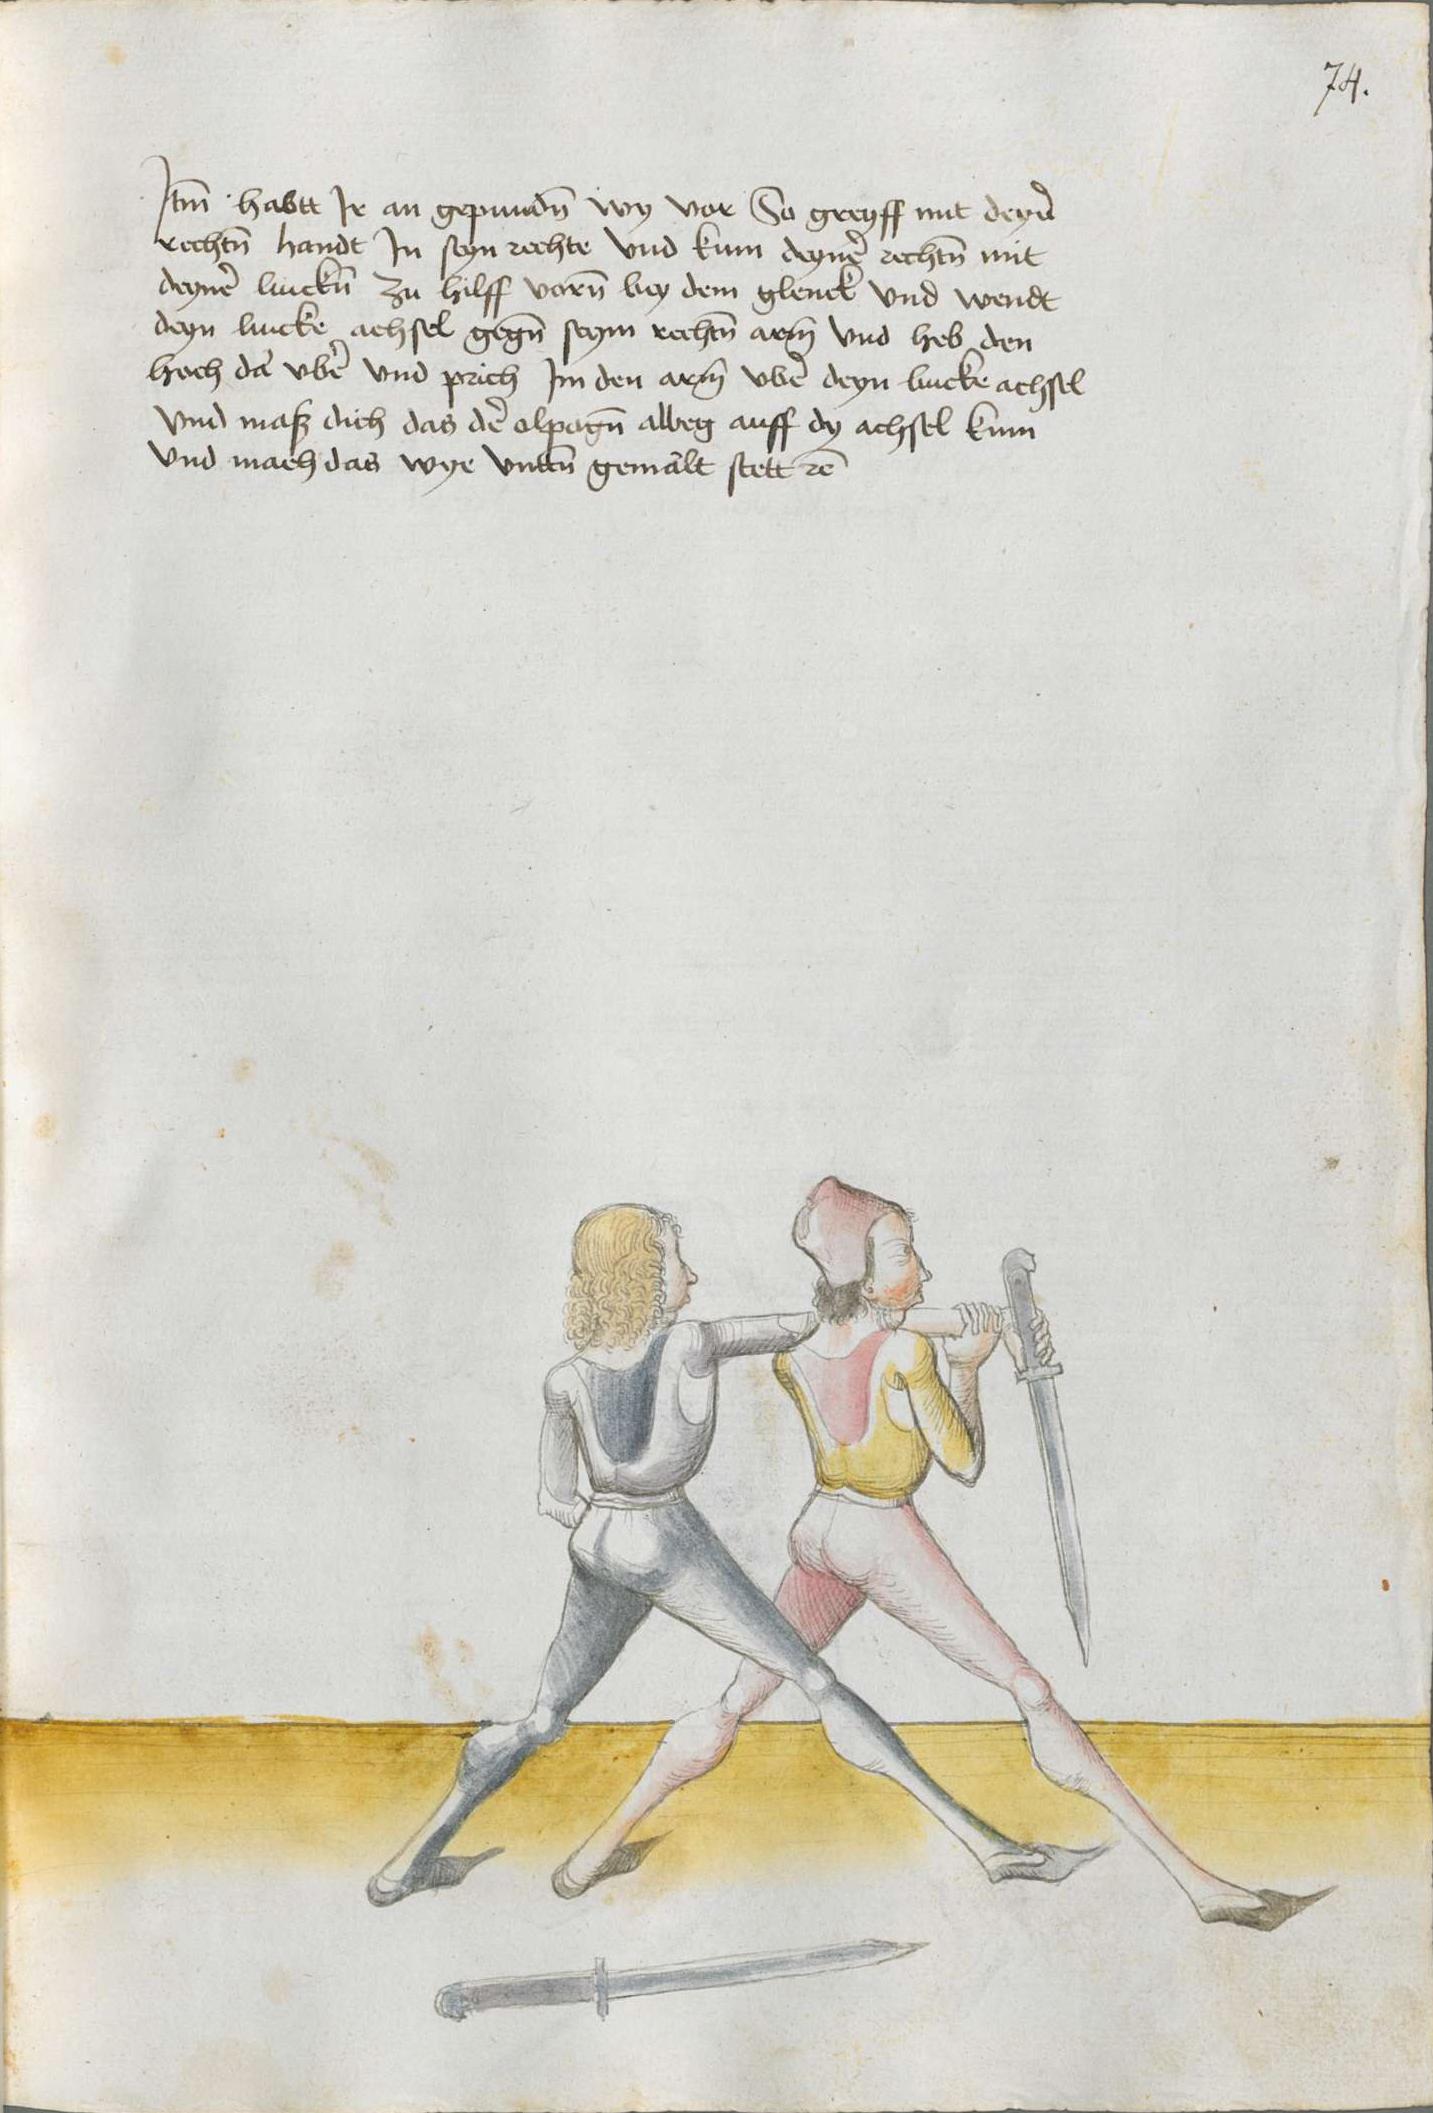 74.
Itm̄ habtt Ir an gepundn̄ wy vor So greyff mit deyn̄
rechtn̄ handt In seyn rechte vnd kum deyner̄ rechtn̄ mit
deyner̄ linckn̄ zu hilff vorn̄ bey dem glenck vnd wendt
deyn lincke achsel gegn̄ seym rechtn̄ arm̄ vnd heb den
hoch da vber̄ vnd prich Im den arm̄ vber̄ deyn lincke achsel
vnd maß dich das der̄ elpogn̄ albeg auff dy achsel kum
vnd mach das wye vnttn̄ gemalt stett